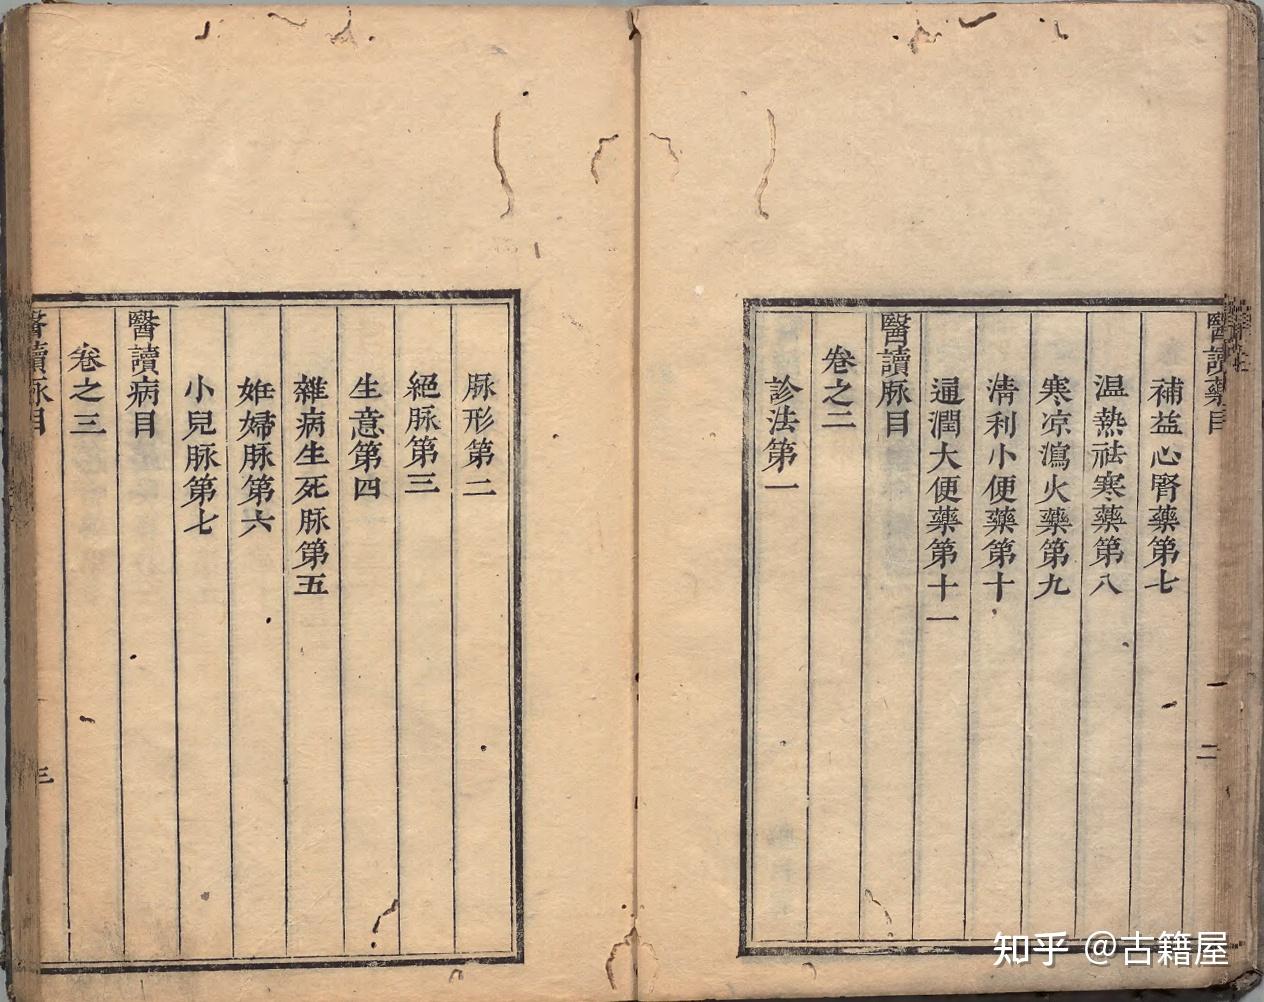 醫讀藥目
二
補益心腎藥第七
温熱祛寒藥第八
寒凉瀉火藥第九
淸利小便藥第十
通潤大便藥第十一
醫讀脉目
卷之二
診法第一
脉形第二
絕脉第三
生意第四
雜病生死脉第五
姙婦脉第六
小兒脉第七
醫讀病目
卷之三
醫讀脉目
三
知乎 @古籍屋